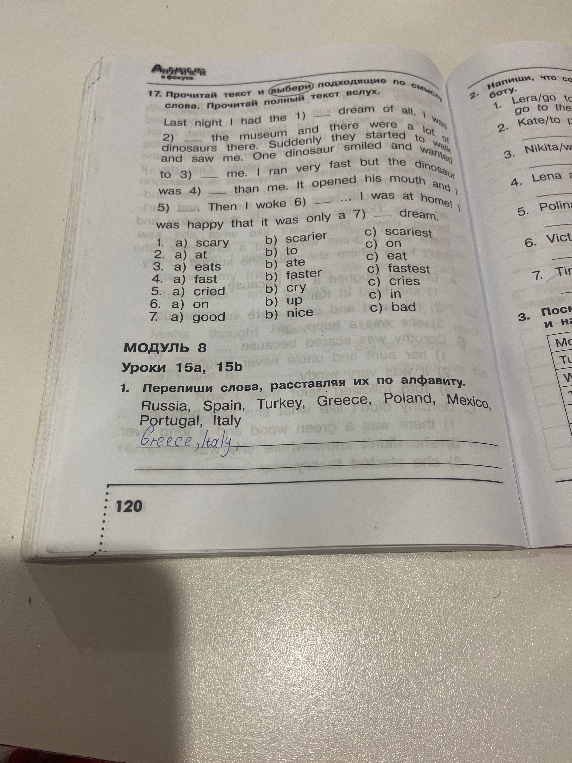 17. Прочитай текст и выбери подходящие по смыслу
слова. Прочитай полный текст вслух.
Last night I had the 1) ___ dream of all. I was
2) ___ the museum and there were a lot of
dinosaurs there. Suddenly they started to walk
and saw me. One dinosaur smiled and wanted
to 3) ___ me. I ran very fast but the dinosaur
was 4) ___ than me. It opened his mouth and I
5) ___. Then I woke 6) ___ ... I was at home! I
was happy that it was only a 7) ___ dream.
1. a) scary b) scarier c) scariest
2. a) at b) to c) on
3. a) eats b) ate c) eat
4. a) fast b) faster c) fastest
5. a) cried b) cry c) cries
6. a) on b) up c) in
7. a) good b) nice c) bad
МОДУЛЬ 8
Уроки 15a, 15b
1. Перепиши слова, расставляя их по алфавиту.
Russia, Spain, Turkey, Greece, Poland, Mexico,
Portugal, Italy
Greece, Italy,
120
2. Напиши, что
боту.
1. Lera/go to
go to the
2. Kate/to
3. Nikita/
4. Lena
5.
6.
7.
3.
и